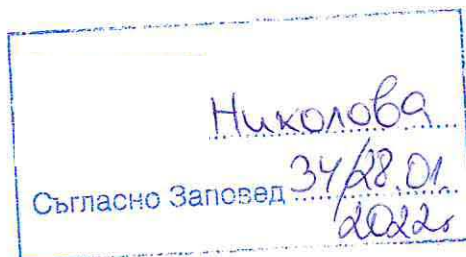 Николова
Съгласно Заповед 34/28.01.
2022г